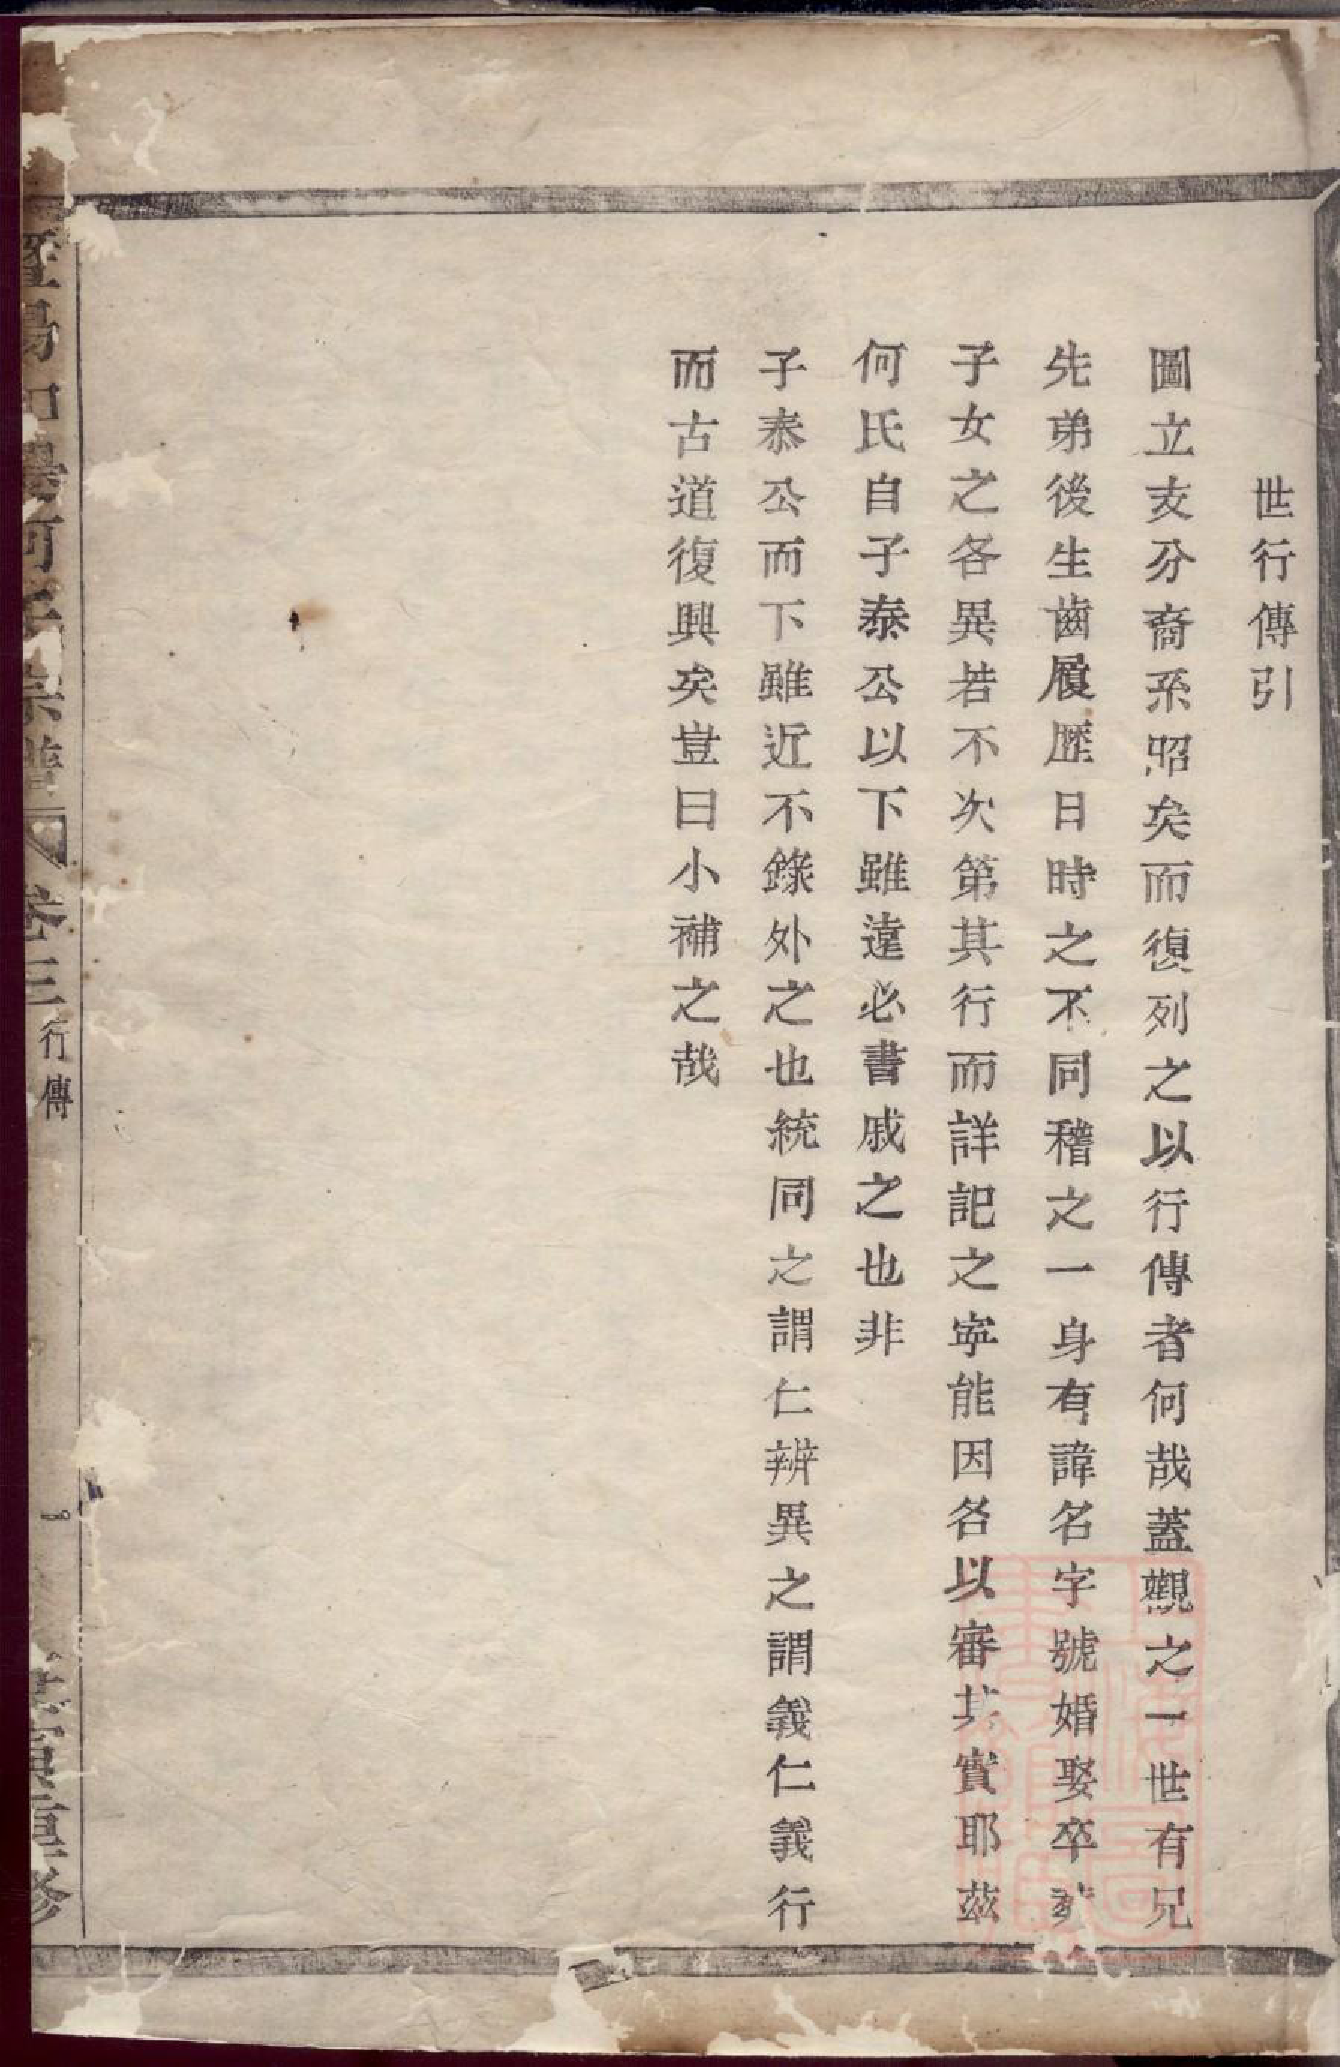 世行傳引
圖立支分裔系昭矣而復列之以行傳者何哉蓋觀之一世有兄
先弟後生齒履歷日時之不同稽之一身有諱名字號婚娶卒
子女之各異若不次第其行而詳記之寧能因名以審其實耶茲
何氏自子泰公以下雖遠必書戚之也非
子泰公而下雖近不錄外之也統同之謂仁辨異之謂義仁義行
而古道復興矣豈曰小補之哉
何氏宗譜
卷三
行傳